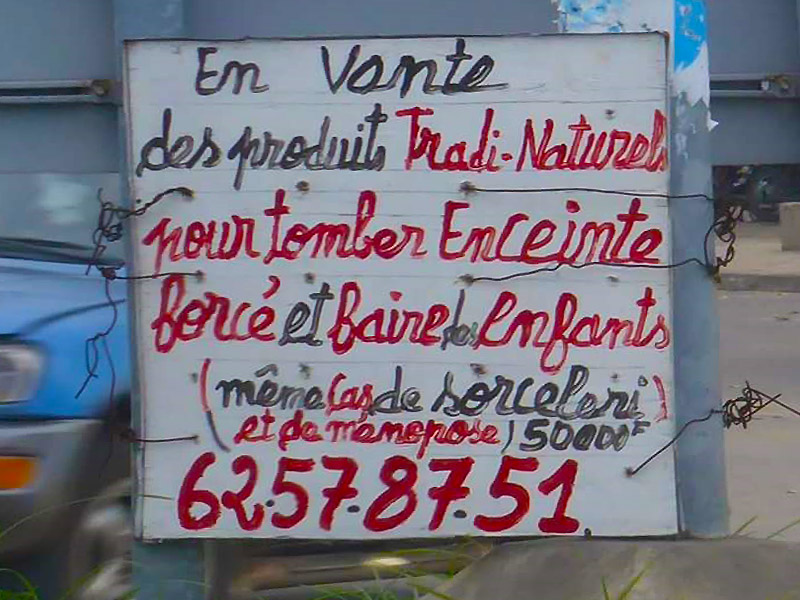 En Vante
des produits Tradi-Naturels
pour tomber Enceinte
forcé et faire des Enfants
(même cas de sorceleri)
(et de menopose) 50000F
62.57.87.51